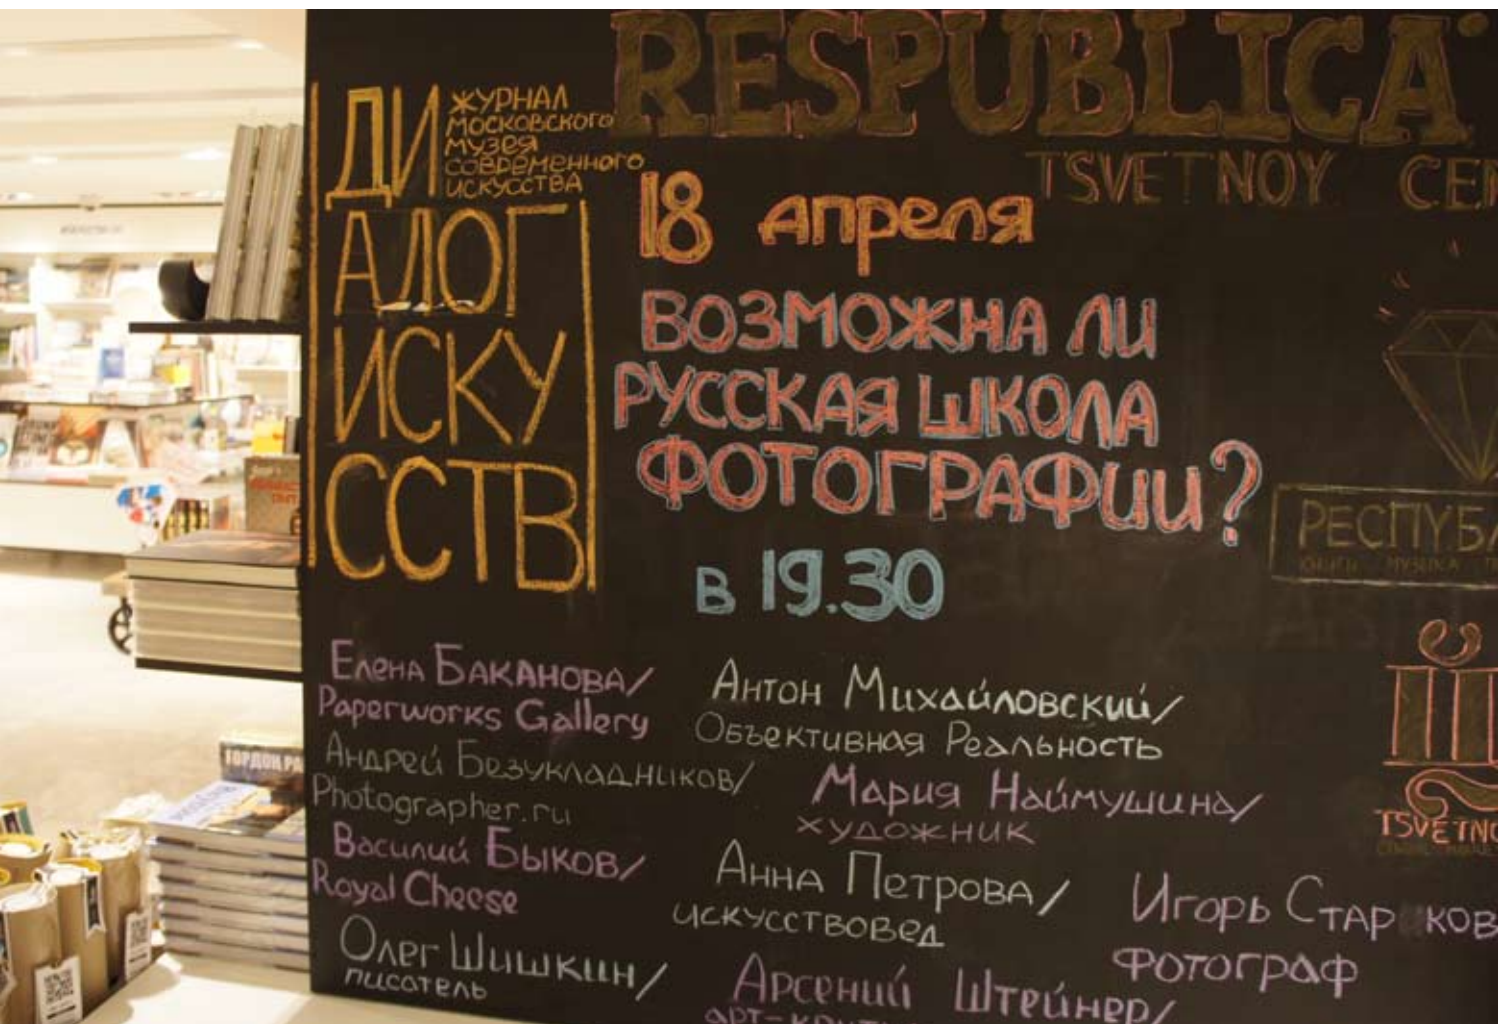 RESPUBLICA
TSVETNOY CEN
ДИ
ЖУРНАЛ
МОСКОВСКОГО
МУЗЕЯ
СОВРЕМЕННОГО
ИСКУССТВА
АЛОГ
ИСКУ
ССТВ
18 апреля
ВОЗМОЖНА ЛИ
РУССКАЯ ШКОЛА
ФОТОГРАФИИ?
в 19.30
РЕСПУБЛ
КНИГИ МУЗЫКА
Елена БАКАНОВА/
Paperworks Gallery
Андрей Безукладников/
Photographer.ru
Василий Быков/
Royal Cheese
Олег Шишкин/
писатель
Антон Михайловский/
Объективная Реальность
Мария Наймушина/
художник
Анна Петрова/
искусствовед
Арсений Штейнер/
арт-крити
Игорь Стар ков
фотограф
TSVETNO
ГОРДОН РА